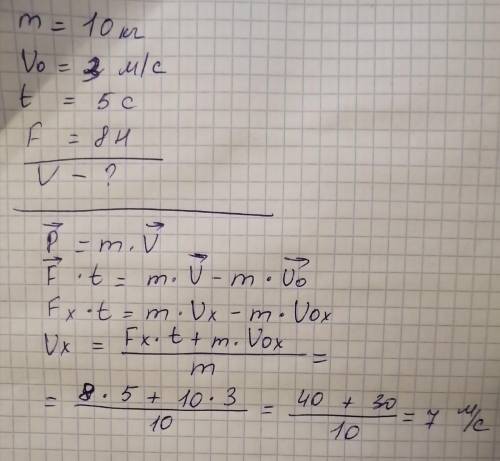 m = 10 кг
V₀ = 3 м/с
t = 5 с
F = 8 Н
V – ?
P⃗ = m · V⃗
F⃗ · t = m · V⃗ – m · V⃗₀
Fx · t = m · Vx – m · V₀x
Vx = (Fx · t + m · V₀x) / m =
= (8 · 5 + 10 · 3) / 10 = (40 + 30) / 10 = 7 м/с